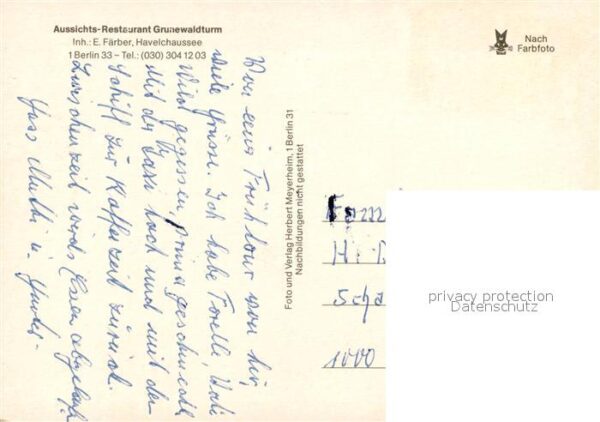 Aussichts-Restaurant Grunewaldturm
Inh.: E. Färber, Havelchaussee
1 Berlin 33 – Tel.: (030) 304 12 03
Nach
Farbfoto
Von eine Frühtour von hier
viele Grüsse. Ich habe Forelle, Vati
Wild gegessen, prima geschmeckt
Mit der Taxi hoch und mit der
Schiff zur Kaffeezeit zurück.
Zwischenzeit wirds
Mutti u.
Foto und Verlag Herbert Meyerheim, 1 Berlin 31
Nachbildungen nicht gestattet
Fam
H.
Scha
1000
privacy protection
Datenschutz